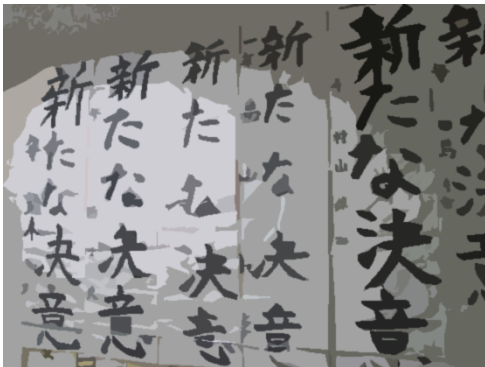 新たな決意
新たな決意
新たな決意
新たな決意
新たな決意
新たな決意